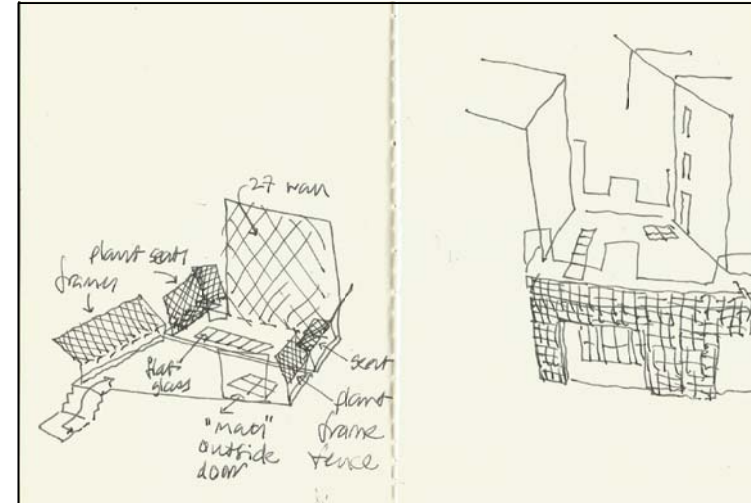 27 wall
plant seat
frames
flat
glass
seat
plant
frame
fence
"mat"
outside
door